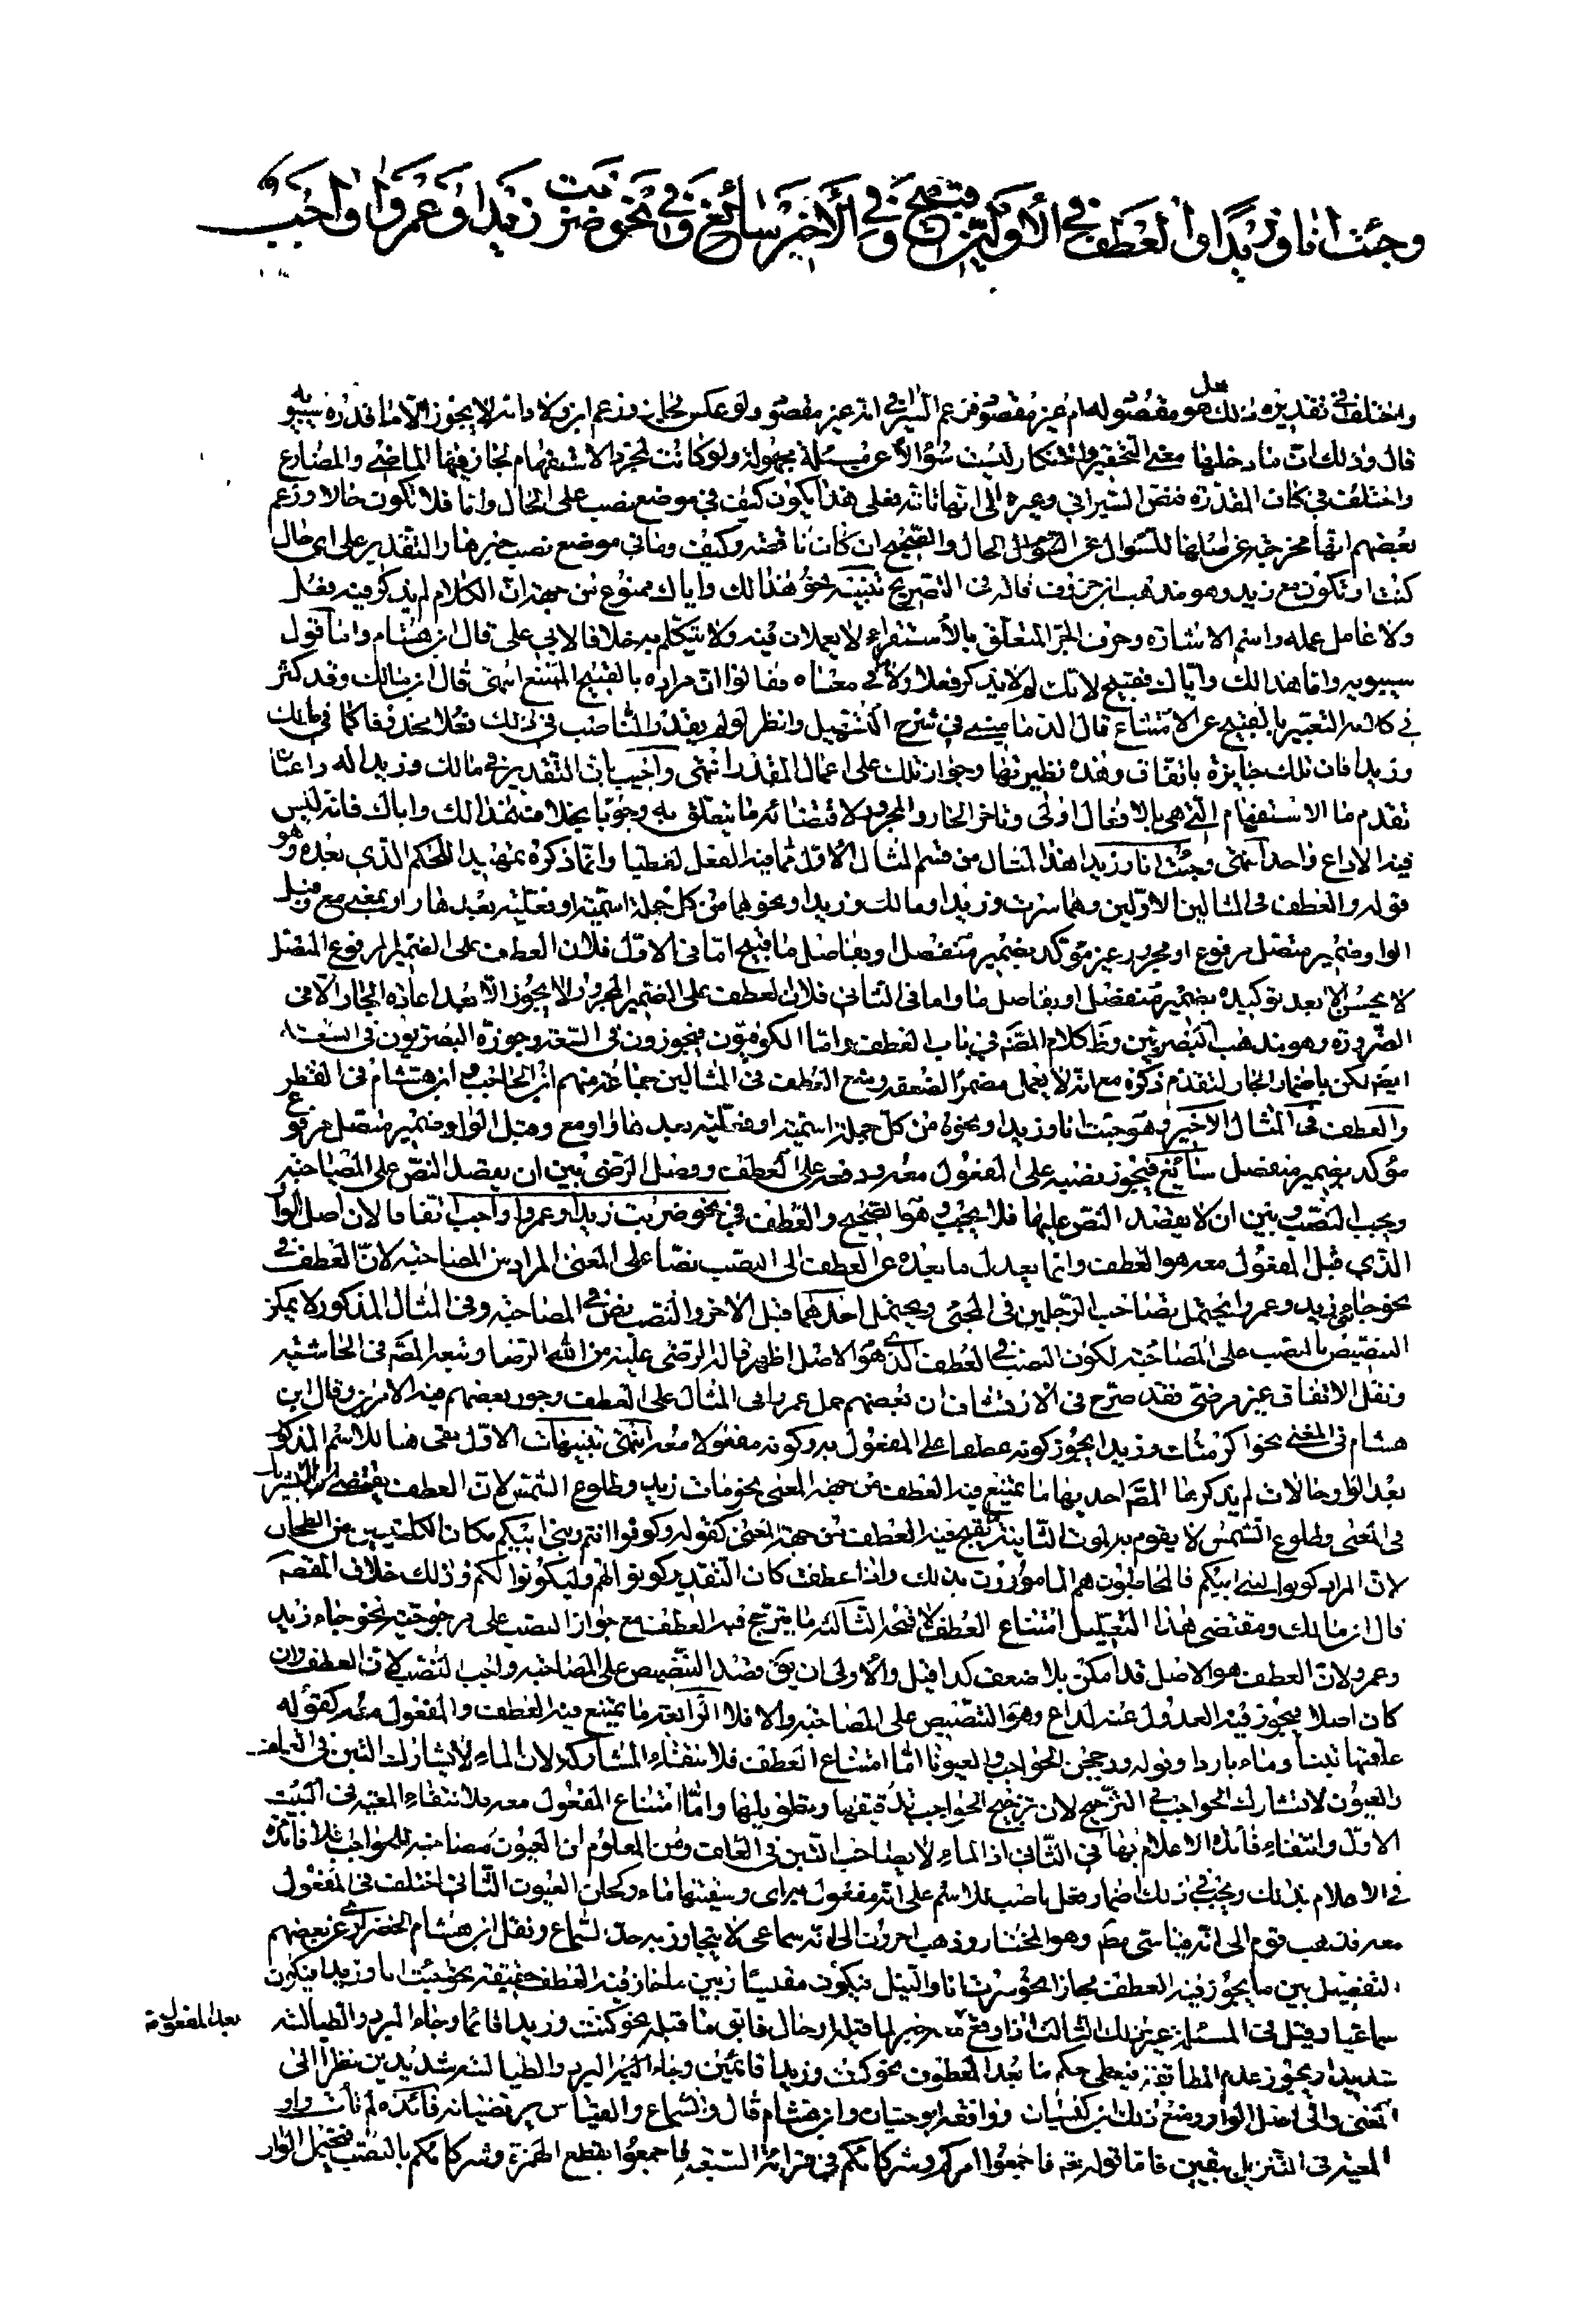 وجئت انا وزيدا والعطف في الاولين قبيح وفي الاخير سائغ وفي نحو ضربت زيدا وعمروا واجب
واختلف في تقديره ذلك هل هو مقصود له ام غير مقصود فزعم السيرافي انه غير مقصود ولو عكس لجاز وزعم ابن ولاد انه لا يجوز الا ما قدره سيبويه
قال وذلك ان ما دخلها معنى التحقير والانكار ليست سؤالا عن مسئلة مجهولة ولو كانت لمجرد الاستفهام لجاز فيها الماضي والمضارع
واختلف في كان المقدرة فنص السيرافي وغيره الى انها تامة فعلى هذا يكون كيف في موضع نصب على الحال واما فلا تكون حالا وزعم
بعضهم انها مخرجة عن اصلها للسؤال عن الحال والصحيح ان كان ناقصة وكيف وما في موضع نصب خبرها والتقدير على اي حال
كنت او تكون مع زيد وهو مذهب ابن خروف قاله في التصريح تنبيه نحو هذا لك واياك ممنوع من جهة ان الكلام لم يذكر فيه فعل
ولا عامل عمله واسم الاشارة وحرف الجر المتعلق بالاستقرار لا يعملان فيه ولا يتكلم به خلافا لابي علي قال ابن هشام واما قول
سيبويه واما هذا لك واياك فقبيح لانك لم تذكر فعلا ولا ما في معناه فقالوا ان مراده بالقبيح الممتنع انتهى قال ابن مالك وقد كثر
في كلامه التعبير بالقبيح عن الامتناع قال الدماميني في شرح التسهيل وانظر لو لم يقدر الناصب في ذلك فعلا محذوفا كما في مالك
وزيدا فان تلك جايزة باتفاق وهذه نظيرتها وجواز تلك على اعمال المقدر انتهى واجيب بان التقدير في مالك وزيدا له داعيان
تقدم ما الاستفهام التي هي بالافعال اولى وتاخر الجار والمجرور لاقتضائه ما يتعلق به وجوبا بخلاف هذا لك واياك فانه ليس
فيه الا داع واحد انتهى وجئت انا وزيدا هذا المثال من قسم المثال الاول مما فيه الفعل لفظيا وانما ذكره تمهيدا للحكم الذي بعده وهو
قوله والعطف في المثالين الاولين وهما سرت وزيدا ومالك وزيدا ونحوهما من كل جملة اسمية او فعلية بعدها واو بمعنى مع وقبل
الواو ضمير متصل مرفوع او مجرور غير مؤكد بضمير منفصل او بفاصل ما قبيح اما في الاول فلان العطف على الضمير المرفوع المتصل
لا يحسن الا بعد توكيده بضمير منفصل او بفاصل ما واما في الثاني فلان العطف على الضمير المجرور لا يجوز الا بعد اعادة الجار الا في
الضرورة وهو مذهب البصريين وظ كلام المص في باب العطف واما الكوفيون فيجوزون في السعة وجوزه البصريون في السعة
ايض لكن باضمار الجار لتقدم ذكره مع انه لا يعمل مضمرا لضعفه ومنع العطف في المثالين جماعة منهم ابن الحاجب وابن هشام في القطر
والعطف في المثال الاخير وهو جئت انا وزيدا ونحوه من كل جملة اسمية او فعلية بعدها واو مع وقبل الواو ضمير متصل مرفوع
مؤكد بضمير منفصل سائغ فيجوز نصبه على المفعول معه ورفعه على العطف وفصل الرضي بين ان يقصد النص على المصاحبة
ويجب النصب وبين ان لا يقصد النص عليها فلا يجب وهو الصحيح والعطف في نحو ضربت زيدا وعمروا واجب اتفاقا لان اصل الواو
الذي قبل المفعول معه هو العطف وانما يعدل ما بعده عن العطف الى النصب نصا على المعنى المراد من المصاحبة لان العطف في
نحو جاءني زيد وعمرو يحتمل تصاحب الرجلين في المجئ ويحتمل احدهما قبل الاخر والنصب نص في المصاحبة وفي المثال المذكور لا يمكن
التنصيص بالنصب على المصاحبة لكون النصب في العطف الذي هو الاصل اظهر قاله الرضي عليه من الله الرضا وتبعه المص في الحاشية
ونقل الاتفاق غير مرضي فقد صرح في الارتشاف ان بعضهم حمل عمروا في المثال على العطف وجوز بعضهم فيه الامرين وقال ابن
هشام في المغني نحو اكرمتك وزيدا يجوز كونه عطفا على المفعول به وكونه مفعولا معه انتهى تنبيهات الاول بقي هنا للاسم المذكور
بعد الواو حالات لم يذكرها المص احديها ما يمتنع فيه العطف من جهة المعنى نحو مات زيد وطلوع الشمس لان العطف يقتضي التشريك
في المعنى وطلوع الشمس لا يقوم به الموت الثانية ما يقبح فيه العطف من جهة المعنى كقوله وكونوا انتم وبني ابيكم مكان الكليتين من الطحال
لان المراد كونوا لبني ابيكم فالمخاطبون هم المامورون بذلك واذا عطفت كان التقدير كونوا لهم وليكونوا لكم وذلك خلاف المقصد
قال ابن مالك ومقتضى هذا التعليل امتناع العطف لا قبحه الثالثة ما يترجح فيه العطف مع جواز النصب على مرجوحية نحو جاء زيد
وعمرو لان العطف هو الاصل قد امكن بلا ضعف كذا قيل والاولى ان يق قصد التنصيص على المصاحبة واجب النصب لان العطف وان
كان اصلا فيجوز فيه العدول عنه لداع وهو التنصيص على المصاحبة والا فلا الرابعة ما يمتنع فيه العطف والمفعول معه كقوله
علفتها تبنا وماء باردا وقوله وزججن الحواجب والعيونا اما امتناع العطف فلانتفاء المشاركة لان الماء لا يشارك التبن في العلف
والعيون لا تشارك الحواجب في التزجيج لان تزجيج الحواجب تدقيقها وتطويلها واما امتناع المفعول معه فلانتفاء المعية في البيت
الاول وانتفاء فائدة الاعلام بها في الثاني اذ الماء لا يصاحب التبن في العلف ومن المعلوم ان العيون مصاحبة للحواجب فلا فائدة
في الاعلام بذلك ويجب في ذلك اضمار فعل ناصب للاسم على انه مفعول به اي وسقيتها ماء وكحلن العيون الثاني اختلف في المفعول
معه فذهب قوم الى انه قياسي مطم وهو المختار وذهب اخرون الى انه سماعي لا يتجاوز به حد السماع ونقل ابن هشام الخضراوي عن بعضهم
التفصيل بين ما يجوز فيه العطف مجازا نحو سرت انا والنيل فيكون مقيسا وبين ما جاز فيه العطف حقيقة نحو جئت انا وزيدا فيكون
سماعيا وقيل في المسئلة غير ذلك الثالث اذا وقع بعد المفعول معه خبر لما قبله او حال طابق ما قبله نحو كنت وزيدا قائما وجاء البرد والطيالسة
شديدا ويجوز عدم المطابقة فيعطى حكم ما بعد المعطوف نحو كنت وزيدا قائمين وجاء البرد والطيالسة شديدين نظرا الى
المعنى والى اصل الواو ومنع ذلك ابن كيسان ووافقه ابو حيان وابن هشام قال والسماع والقياس يرتضيانه فائدة لم تأت واو
المعية في التنزيل بيقين فاما قوله تع فاجمعوا امركم وشركائكم في قرائة السبعة فاجمعوا بقطع الهمزة وشركائكم بالنصب فيحتمل الواو